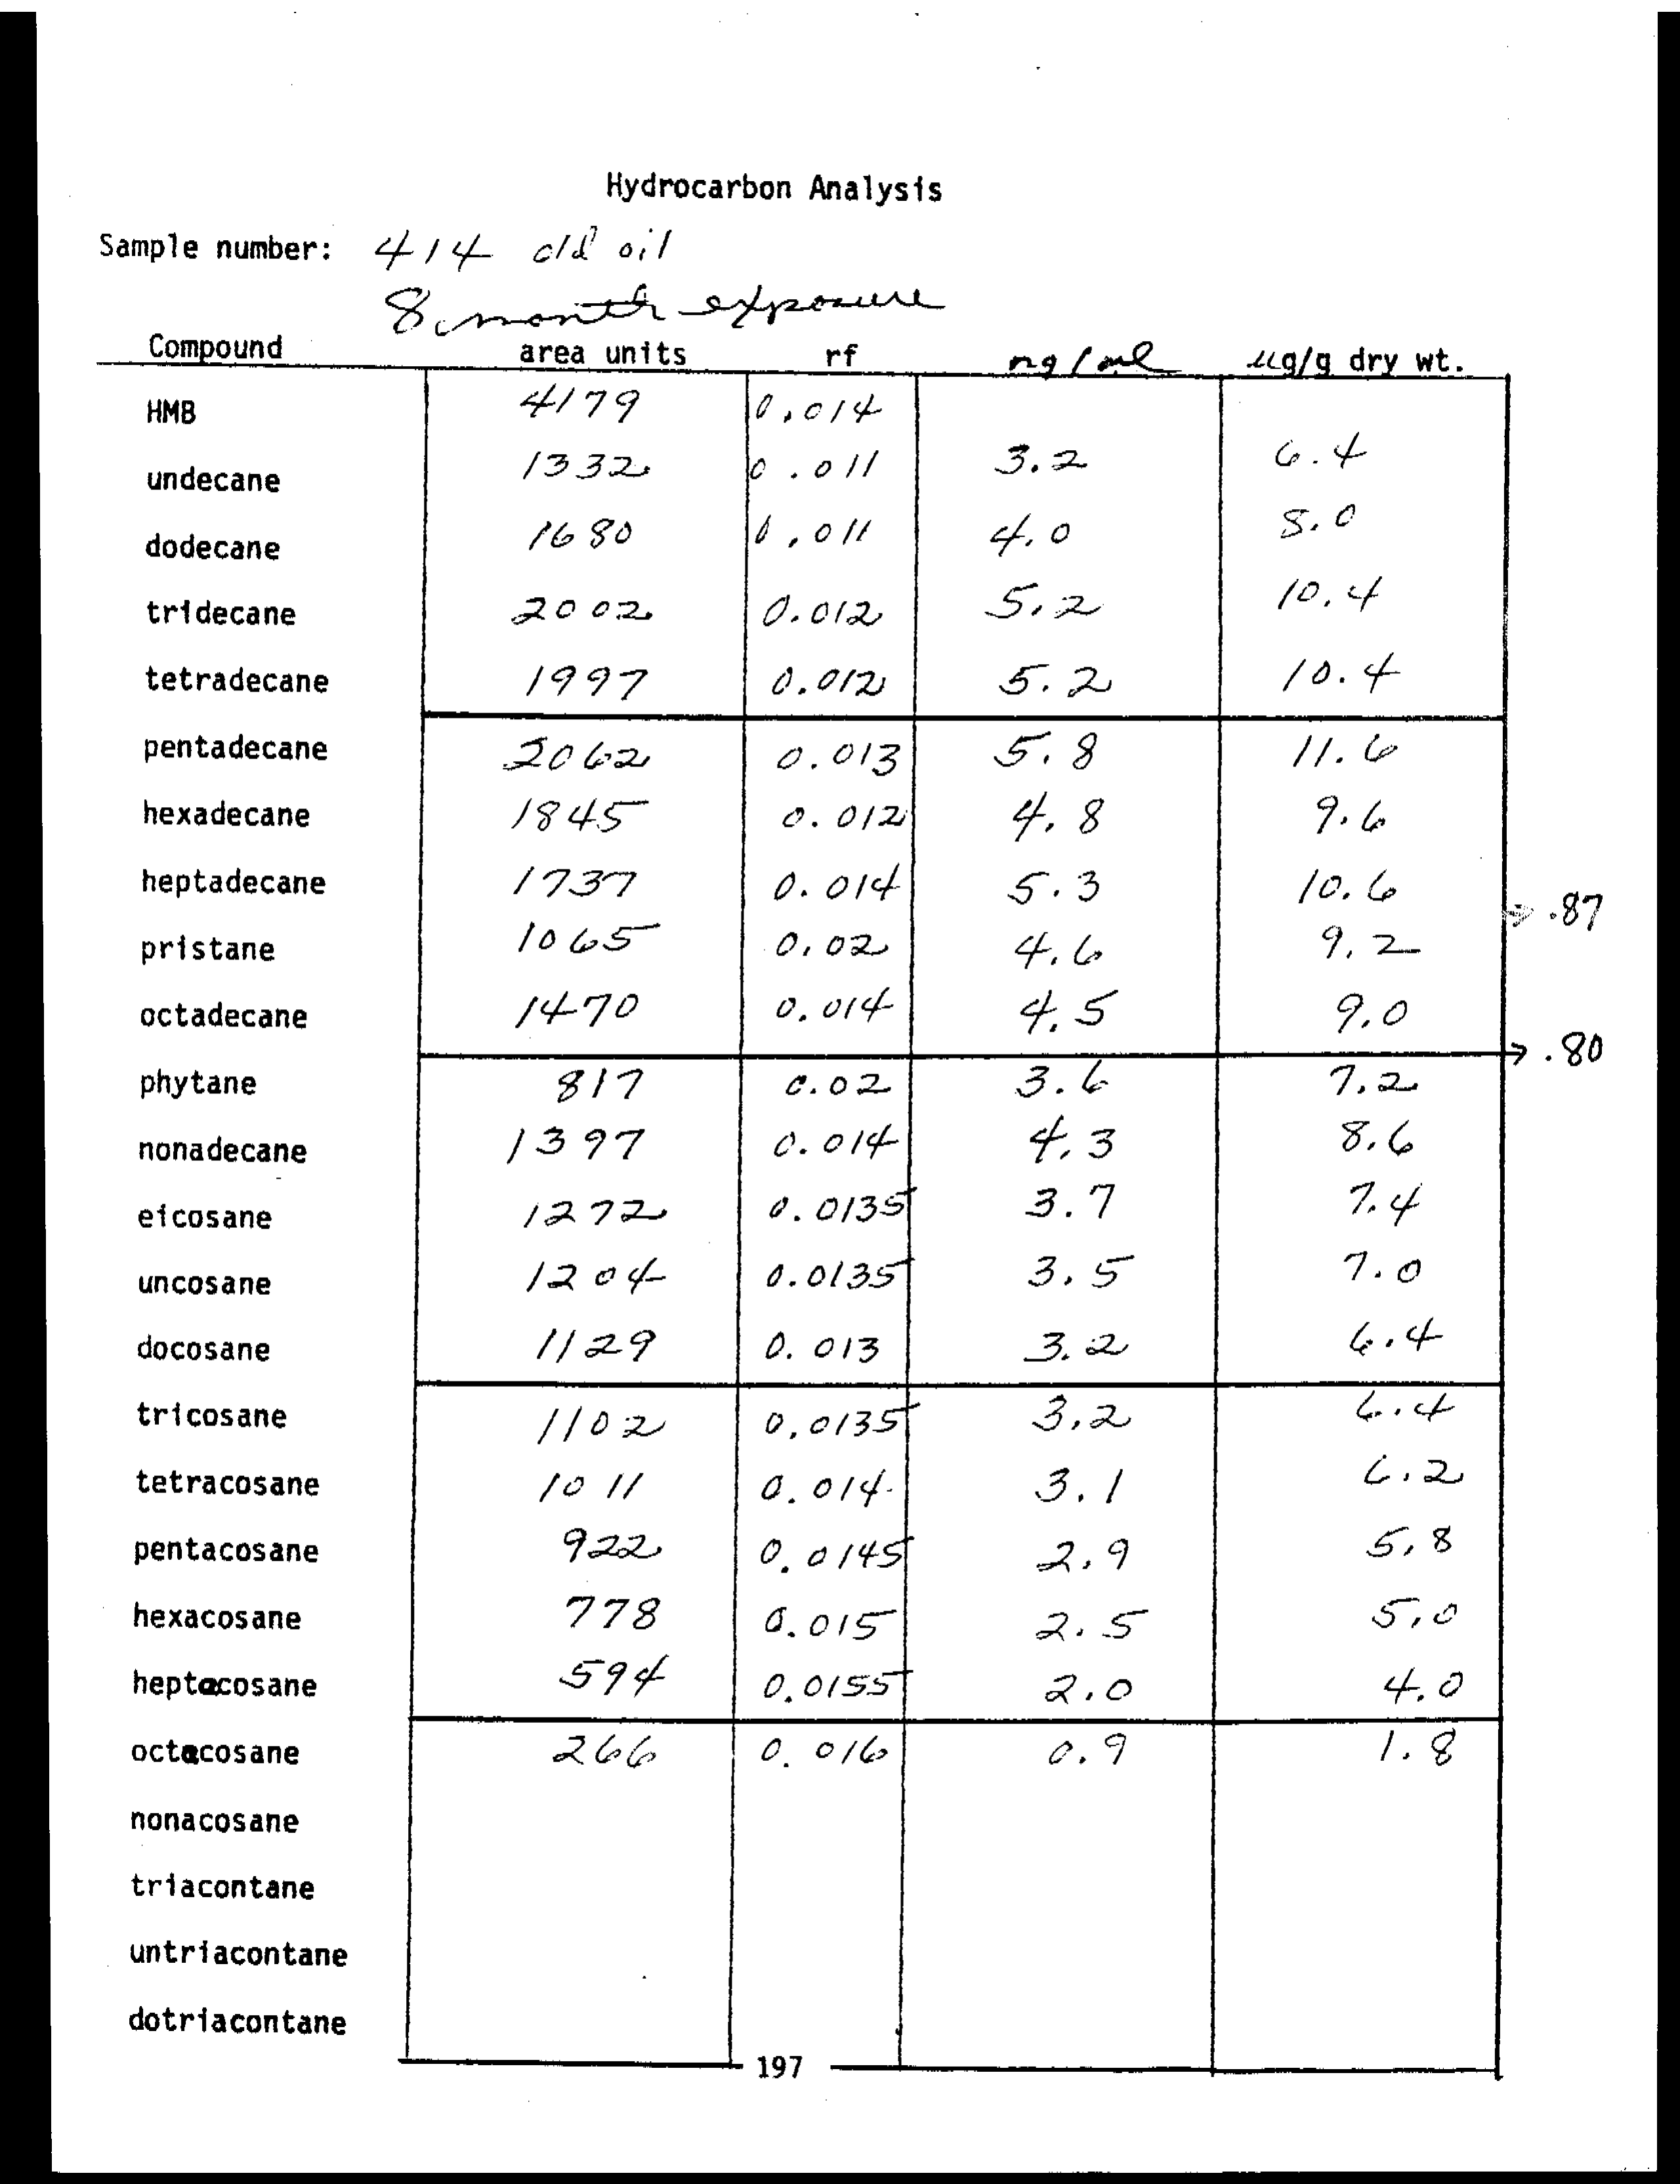 Hydrocarbon Analysis
Sample number: 414 old oil
8 month exposure
Compound area units rf ng/ml µg/g dry wt.
HMB 4179 0.014
undecane 1332 0.011 3.2 6.4
dodecane 1680 0.011 4.0 8.0
tridecane 2002 0.012 5.2 10.4
tetradecane 1997 0.012 5.2 10.4
pentadecane 2062 0.013 5.8 11.6
hexadecane 1845 0.012 4.8 9.6
heptadecane 1737 0.014 5.3 10.6
→ .87
pristane 1065 0.02 4.6 9.2
octadecane 1470 0.014 4.5 9.0
→ .80
phytane 817 0.02 3.6 7.2
nonadecane 1397 0.014 4.3 8.6
eicosane 1272 0.0135 3.7 7.4
uncosane 1204 0.0135 3.5 7.0
docosane 1129 0.013 3.2 6.4
tricosane 1102 0.0135 3.2 6.4
tetracosane 1011 0.014 3.1 6.2
pentacosane 922 0.0145 2.9 5.8
hexacosane 778 0.015 2.5 5.0
heptacosane 594 0.0155 2.0 4.0
octacosane 266 0.016 0.9 1.8
nonacosane
triacontane
untriacontane
dotriacontane
197